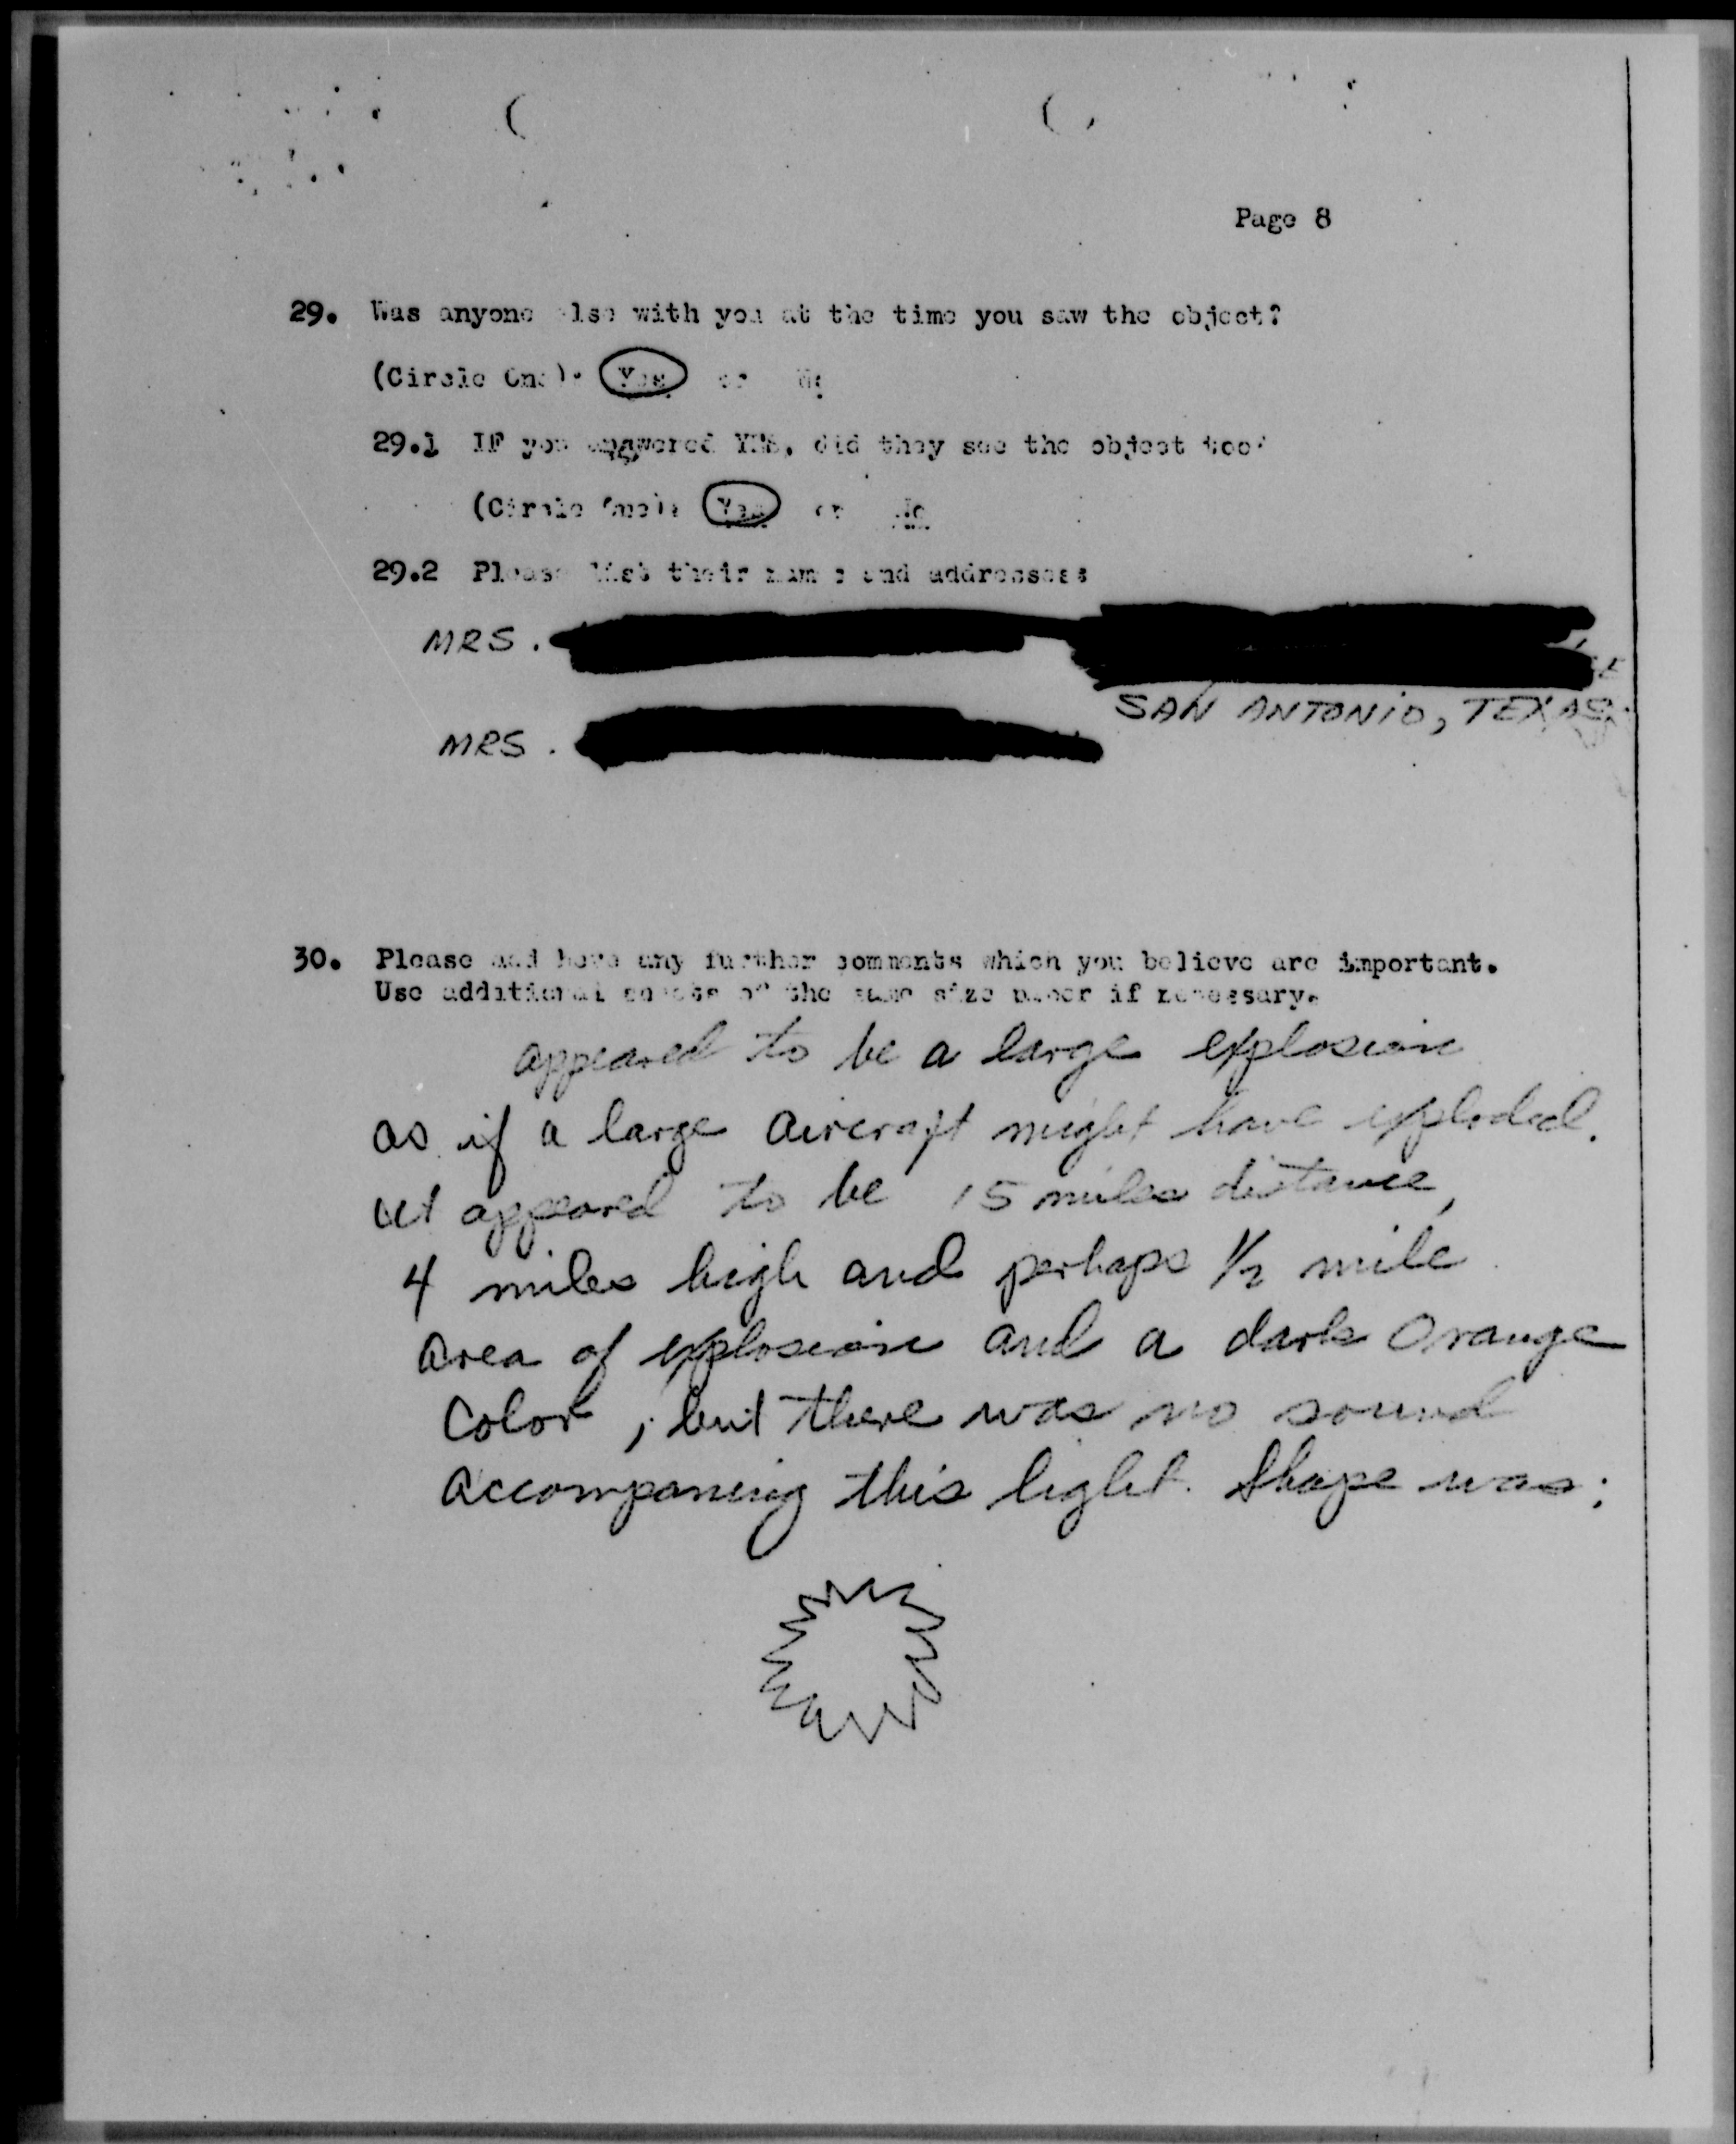 Page 8
29. Was anyone else with you at the time you saw the object?
(Circle One): Yes or No
29.1 IF you answered YES, did they see the object too?
(Circle One): Yes or No
29.2 Please list their names and addresses:
MRS.
SAN ANTONIO, TEXAS
MRS.
30. Please add here any further comments which you believe are important.
Use additional sheets of the same size paper if necessary.
appeared to be a large explosion
as if a large aircraft might have exploded.
it appeared to be 15 miles distance,
4 miles high and perhaps 1/2 mile
area of explosion and a dark orange
color, but there was no sound
accompaning this light. Shape was: